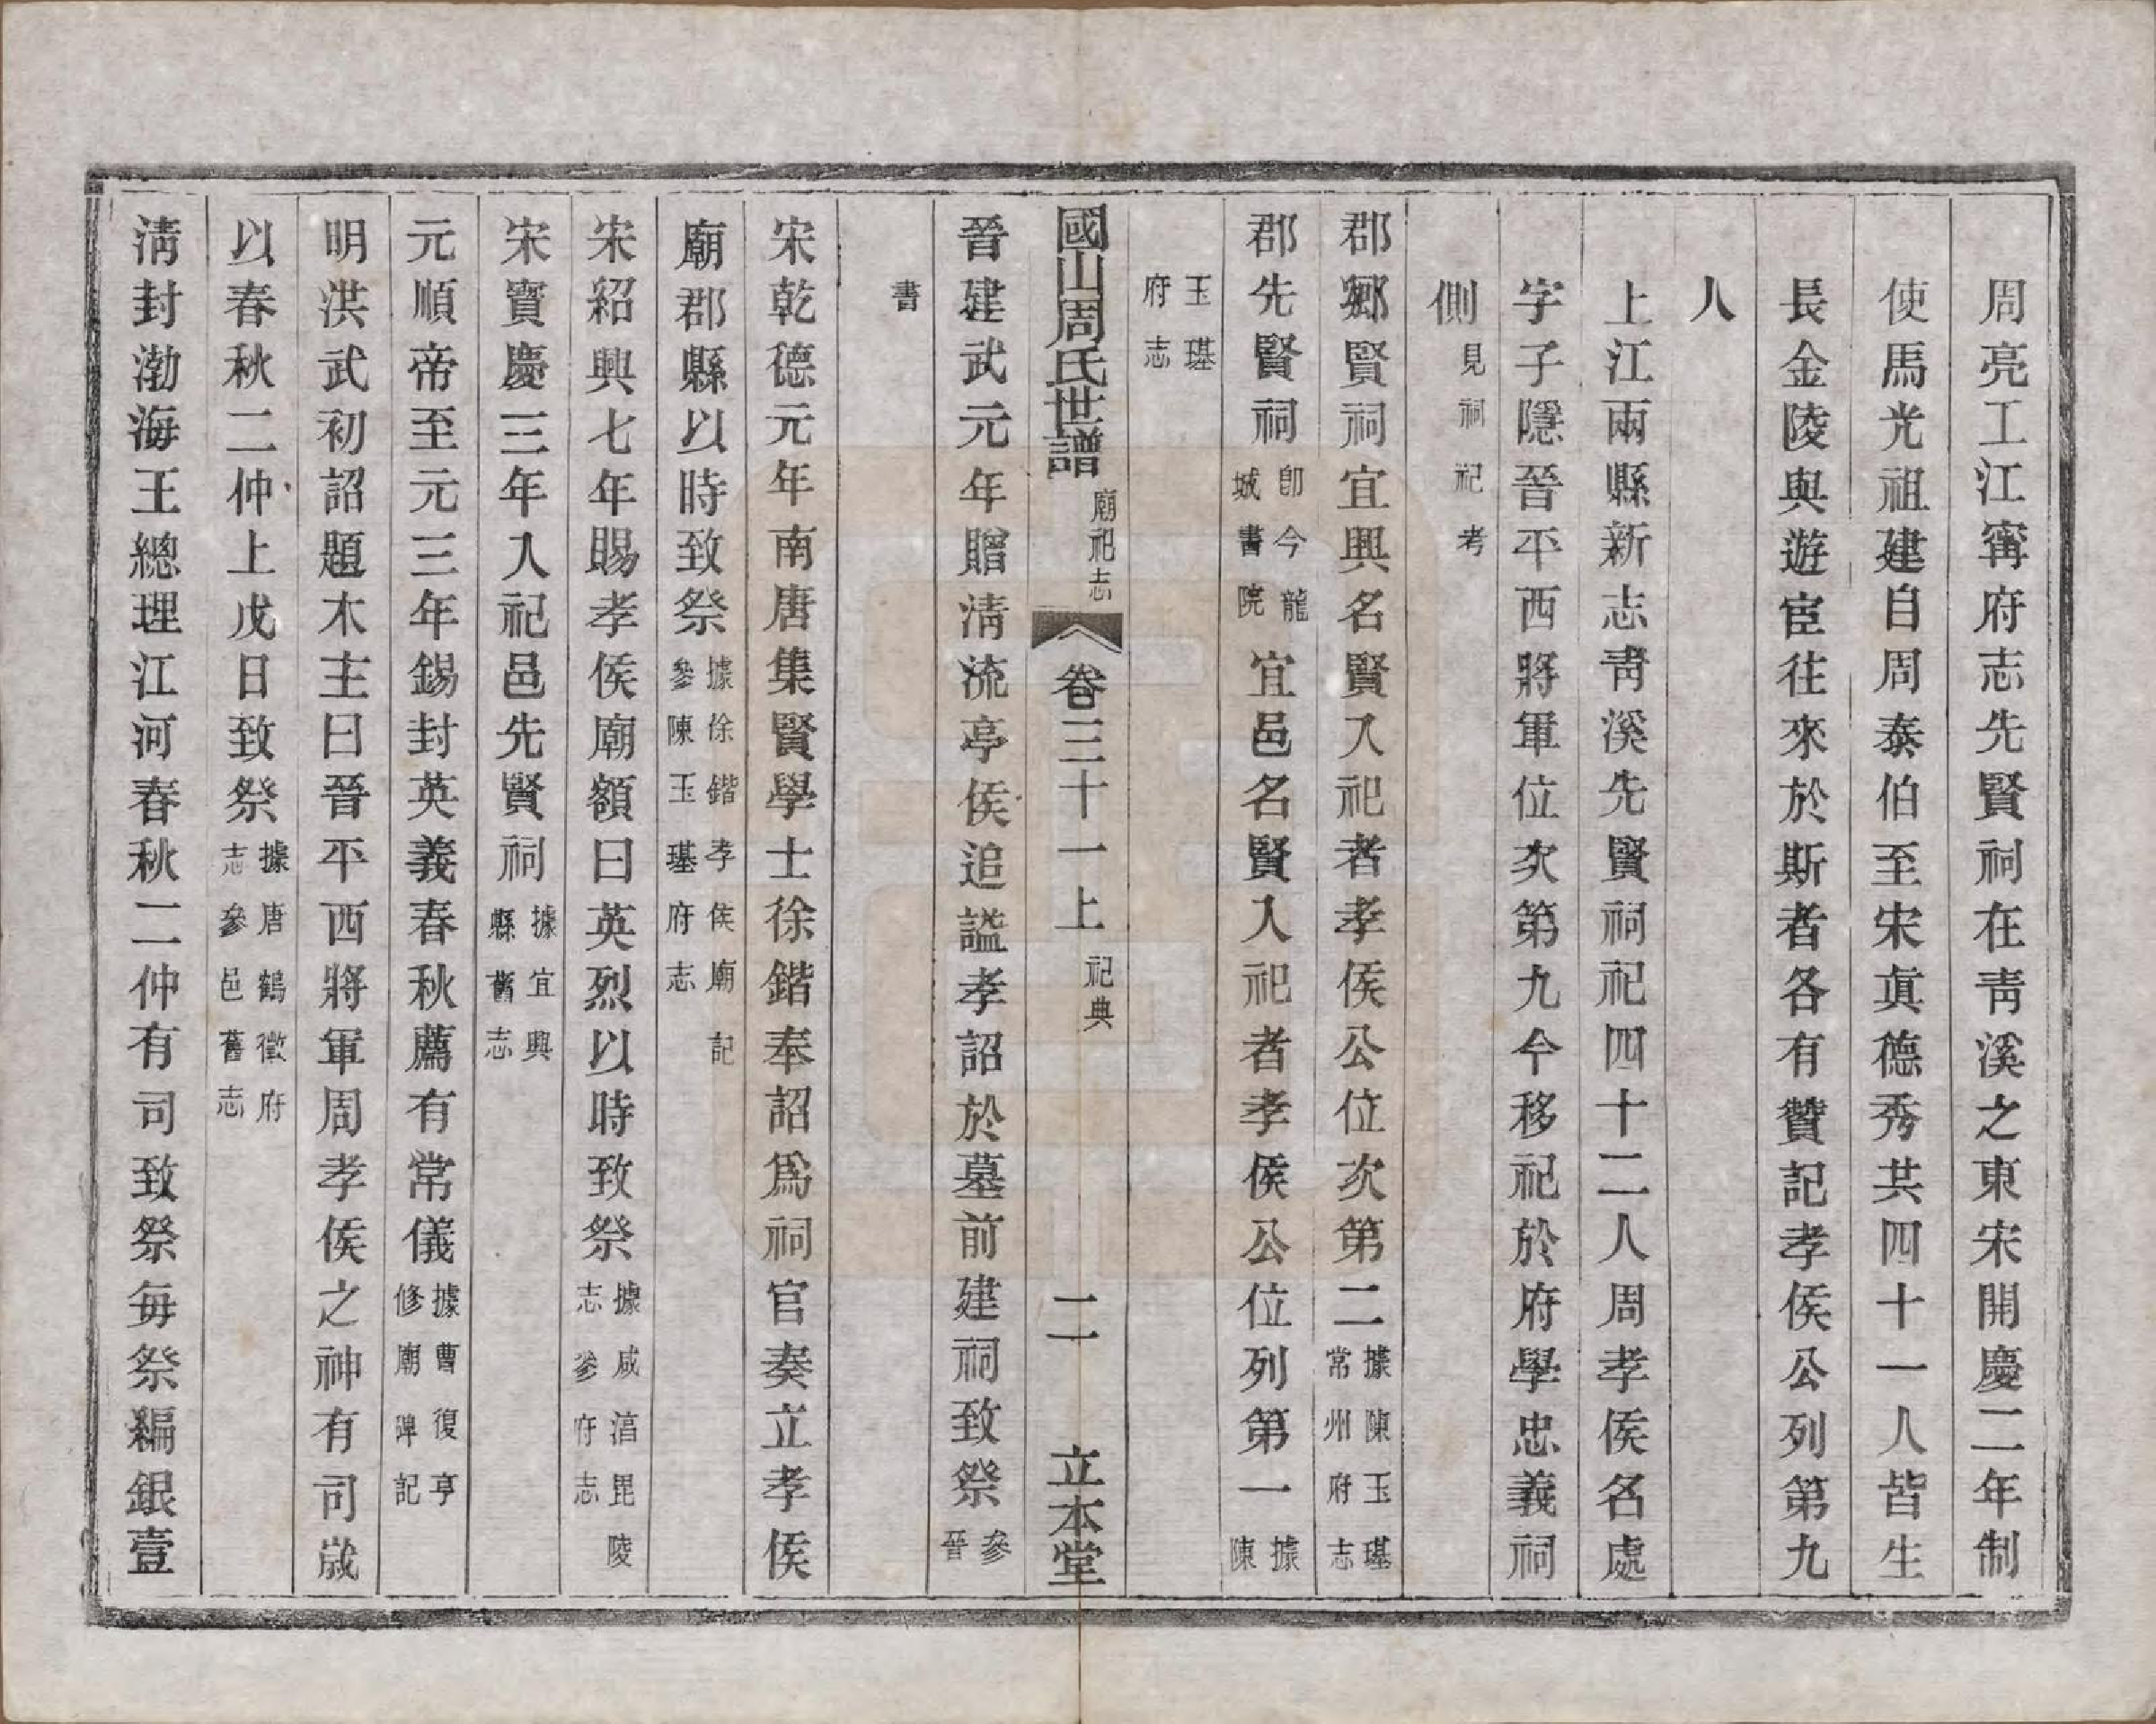 周亮工江寧府志先賢祠在靑溪之東宋開慶二年制
使馬光祖建自周泰伯至宋眞德秀共四十一人皆生
長金陵與遊宦往來於斯者各有贊記孝侯公列第九
人
上江兩縣新志靑溪先賢祠祀四十二人周孝侯名處
字子隱晉平西將軍位次第九今移祀於府學忠義祠
側見祠祀考
郡鄕賢祠宜興名賢入祀者孝侯公位次第二據陳玉璂常州府志
郡先賢祠卽今龍城書院宜邑名賢入祀者孝侯公位列第一據陳
玉璂府志
國山周氏世譜 廟祀志 卷三十一上 祀典 二 立本堂
晉建武元年贈淸流亭侯追謚孝詔於墓前建祠致祭參晉
書
宋乾德元年南唐集賢學士徐鍇奉詔爲祠官奏立孝侯
廟郡縣以時致祭據徐鍇孝侯廟記參陳玉璂府志
宋紹興七年賜孝侯廟額曰英烈以時致祭據咸淳毘陵志參府志
宋寶慶三年入祀邑先賢祠據宜興縣舊志
元順帝至元三年錫封英義春秋薦有常儀據曹復亨修廟碑記
明洪武初詔題木主曰晉平西將軍周孝侯之神有司歲
以春秋二仲上戊日致祭據唐鶴徵府志參邑舊志
淸封渤海王總理江河春秋二仲有司致祭每祭編銀壹